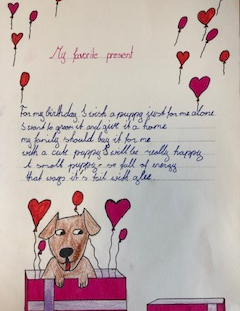 My favorite present
For my birthday I wish a puppy just for me alone.
I want to groom it and give it a home
my family should buy it for me
with a cute puppy I will be really happy
it small puppy - so full of energy
that wags it's tail with glee.